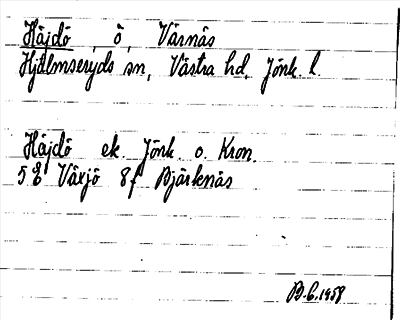 Häjdö, ö, Värnäs
Hjälmseryds sn, Västra hd, Jönk. l.
Häjdö ek. Jönk. o. Kron.
5 E Växjö 8f Bjärknäs
B.C. 1958